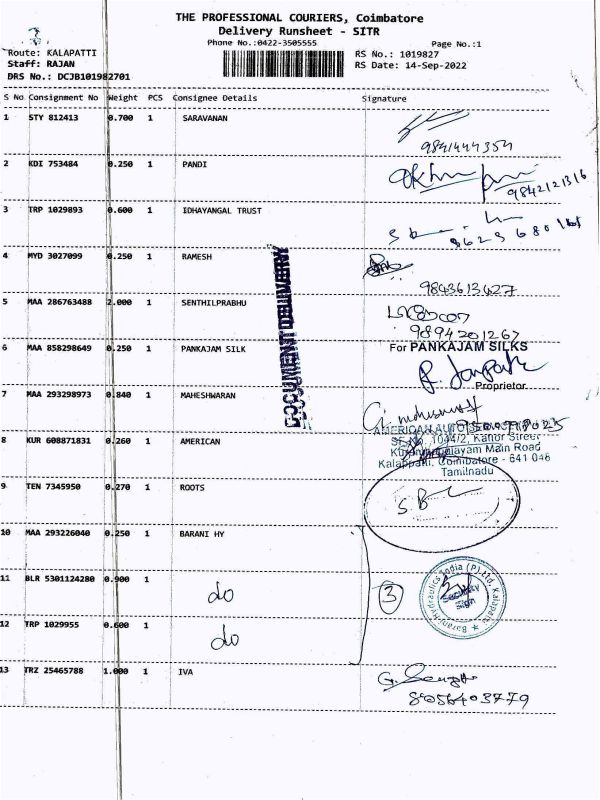 THE PROFESSIONAL COURIERS, Coimbatore
Delivery Runsheet - SITR
Phone No.:0422-3505555 Page No.:1
Route: KALAPATTI RS No.: 1019827
Staff: RAJAN RS Date: 14-Sep-2022
DRS No.: DCJB101982701
S No Consignment No Weight PCS Consignee Details Signature
1 STY 812413 0.700 1 SARAVANAN
2 KDI 753484 0.250 1 PANDI
9842121316
3 TRP 1029893 0.600 1 IDHAYANGAL TRUST
4 MYD 3027099 0.250 1 RAMESH
9843613427
5 MAA 286763488 2.000 1 SENTHILPRABHU
9894201267
6 MAA 858298649 0.250 1 PANKAJAM SILK
For PANKAJAM SILKS
Proprietor.
7 MAA 293298973 0.840 1 MAHESHWARAN
8 KUR 608871831 0.260 1 AMERICAN
AMERICAN
SF.No. 1044/2, Kanor Street
Main Road
Kalappatti, Coimbatore - 641 048
Tamilnadu
9 TEN 7345950 0.270 1 ROOTS
S.B
10 MAA 293226040 0.250 1 BARANI HY
11 BLR 5301124280 0.900 1 do
3
Barani Hydraulics India (P) Ltd, Kalapatti
Security
Sign
12 TRP 1029955 0.600 1 do
13 TRZ 25465788 1.000 1 IVA
8056403779
DOCUMENT DELIVERY